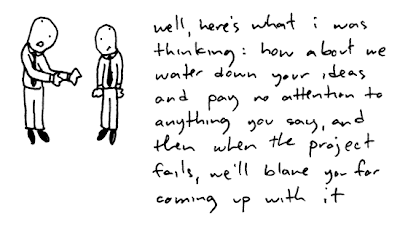 well, here's what i was
thinking: how about we
water down your ideas
and pay no attention to
anything you say, and
then when the project
fails, we'll blame you for
coming up with it